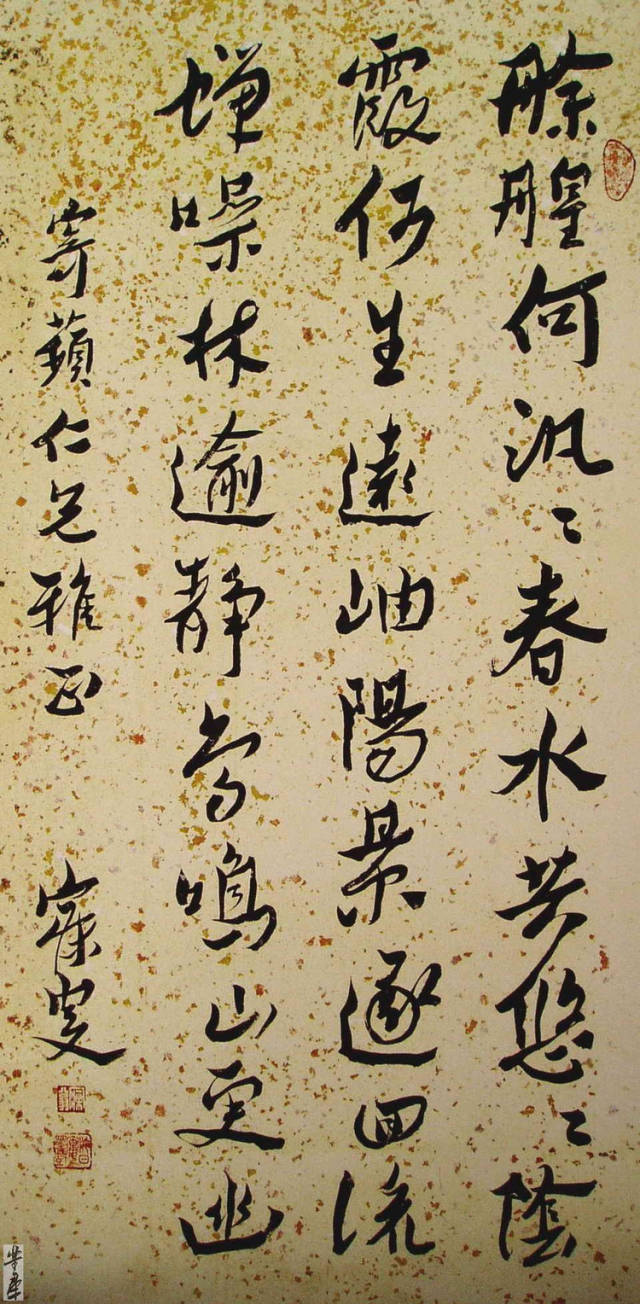 艅艎何汎〻春水共悠〻陰
霞何生遠岫陽景逐回流
蟬噪林逾靜鳥鳴山更幽
寄蘋仁兄雅正　寐叟